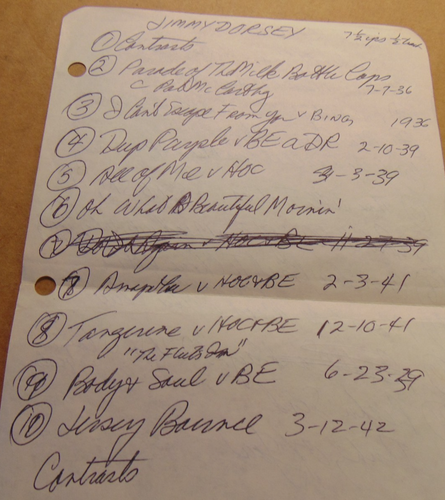 JIMMY DORSEY
7 1/2 ips 1/2 Track
① Contrasts
② Parade of The Milk Bottle Caps
c Pat McCarthy 7-7-36
③ I Can't Escape From You v BING 1936
④ Deep Purple v BE a DR 2-10-39
⑤ All of Me v HOC 3-39
⑥ Oh What A Beautiful Mornin'
⑦ v HOC + BE 11-27-39
⑦ Amapola v HOC+BE 2-3-41
⑧ Tangerine v HOC+BE 12-10-41
"The Fleet's In"
⑨ Body & Soul v BE 6-23-39
⑩ Jersey Bounce 3-12-42
Contrasts